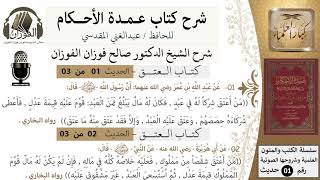 شرح كتاب عمدة الأحكام
للحافظ / عبدالغني المقدسي
شرح الشيخ الدكتور صالح فوزان الفوزان
كتاب العتق - الحديث 01 من 03
01- عَنْ عَبْدِ اللَّهِ بْنِ عُمَرَ رضي الله عنهما: أَنَّ رَسُولَ اللَّهِ ﷺ قَالَ:
(مَنْ أَعْتَقَ شِرْكًا لَهُ فِي عَبْدٍ، فَكَانَ لَهُ مَالٌ يَبْلُغُ ثَمَنَ الْعَبْدِ: قُوِّمَ عَلَيْهِ قِيمَةَ عَدْلٍ، فَأَعْطَى
شُرَكَاءَهُ حِصَصَهُمْ، وَعَتَقَ عَلَيْهِ الْعَبْدُ، وَإِلَّا فَقَدْ عَتَقَ مِنْهُ مَا عَتَقَ) رواه البخاري.
كتاب العتق - الحديث 02 من 03
02- عَنْ أَبِي هُرَيْرَةَ - رضي الله عنه - عَنْ النَّبِيِّ ﷺ قَالَ:
(مَنْ أَعْتَقَ شِقْصًا مِنْ مَمْلُوكٍ، فَعَلَيْهِ خَلَاصُهُ كُلُّهُ فِي مَالِهِ، فَإِنْ لَمْ يَكُنْ لَهُ مَالٌ قُوِّمَ
الْمَمْلُوكُ قِيمَةَ عَدْلٍ، ثُمَّ اُسْتُسْعِيَ الْعَبْدُ، غَيْرَ مَشْقُوقٍ عَلَيْهِ) رواه البخاري.
الفوزان
سلسلة الكتب والمتون
العلمية وشروحها الصوتية
رقم 01 حديث